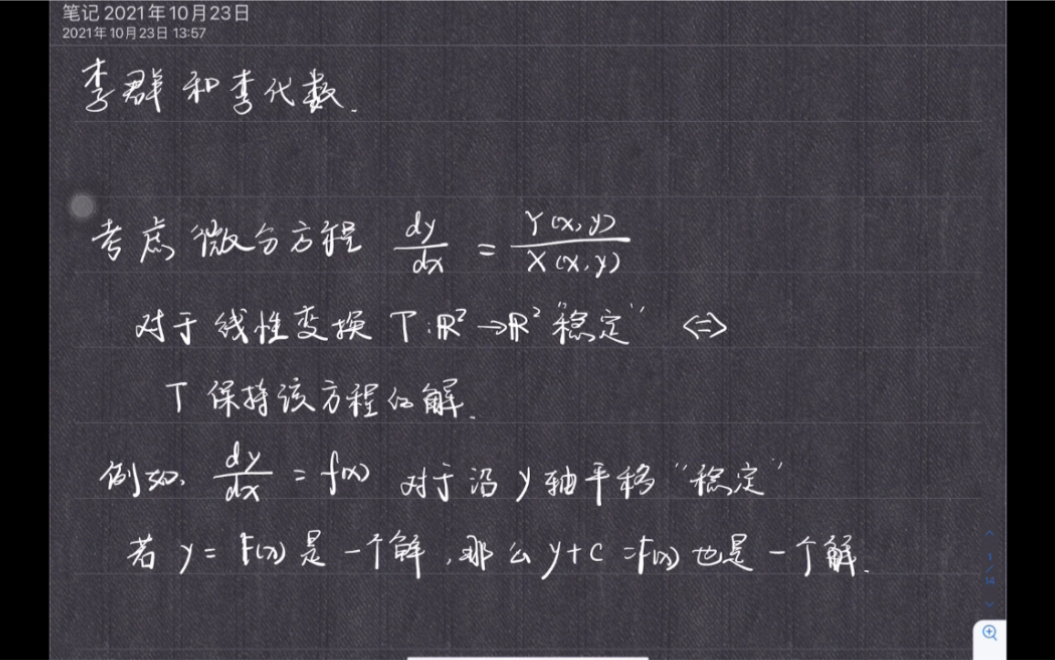 笔记 2021年10月23日
2021年10月23日 13:57
李群和李代数.
考虑微分方程 dy/dx = Y(x,y)/X(x,y)
对于线性变换 T:ℝ²→ℝ² “稳定” <=>
T 保持该方程的解.
例如, dy/dx = f(x) 对于沿 y 轴平移 “稳定”
若 y = F(x) 是一个解, 那么 y+c = F(x) 也是一个解.
1/14